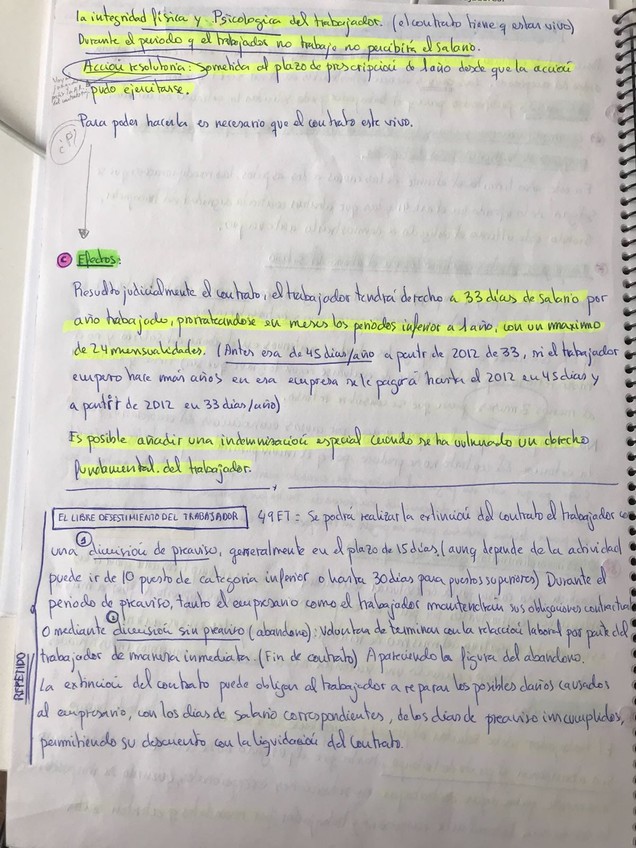 la integridad física y Psicologica del trabajador. (el contrato tiene q estar vivo)
Durante el periodo q el trabajador no trabaje no percibirá el salario.
Acción resolutoria: Sometida al plazo de prescripción de 1 año desde que la acción
pudo ejercitarse.
Para poder hacerla es necesario que el contrato este vivo.
¿P?
C Efectos:
Resuelto judicialmente el contrato, el trabajador tendrá derecho a 33 días de salario por
año trabajado, prorrateandose en meses los periodos inferior a 1 año, con un maximo
de 24 mensualidades. (Antes era de 45 días/año a partir de 2012 de 33, si el trabajador
empezo hace más años en esa empresa se le pagará hasta el 2012 en 45 días y
a partir de 2012 en 33 días/año)
Es posible añadir una indemnización especial cuando se ha vulnerado un derecho
fundamental del trabajador.
EL LIBRE DESESTIMIENTO DEL TRABAJADOR 49 ET: Se podrá realizar la extinción del contrato el trabajador con
una 1 dimisión de preaviso, generalmente en el plazo de 15 días, (aunq depende de la actividad
puede ir de 10 puesto de categoria inferior o hasta 30 días para puestos superiores) Durante el
periodo de preaviso, tanto el empresario como el trabajador mantendrán sus obligaciones
O mediante 2 dimisión sin preaviso (abandono): Voluntad de terminar con la relación laboral por parte del
trabajador de manera inmediata. (Fin de contrato) Apareciendo la figura del abandono.
REPETIDO
La extinción del contrato puede obligar al trabajador a reparar los posibles daños causados
al empresario, con los días de salario correspondientes, de los días de preaviso incumplidos,
permitiendo su descuento con la liquidación del contrato.